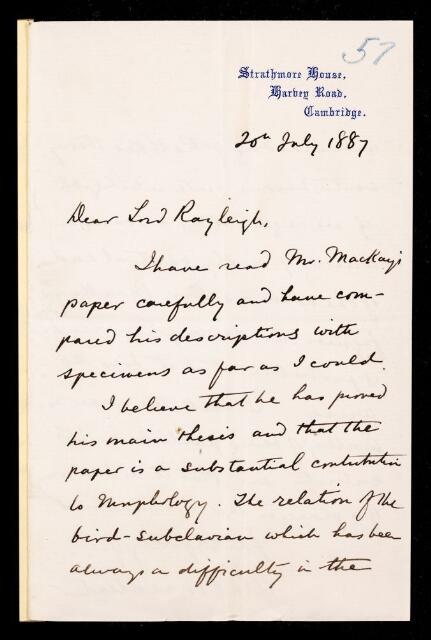 57
Strathmore House,
Harvey Road,
Cambridge.
20th July 1887
Dear Lord Rayleigh,
I have read Mr. MacKay's
paper carefully and have com-
pared his descriptions with
specimens as far as I could.
I believe that he has proved
his main thesis and that the
paper is a substantial contribution
to Morphology. The relation of the
bird-subclavian which has been
always a difficulty in the